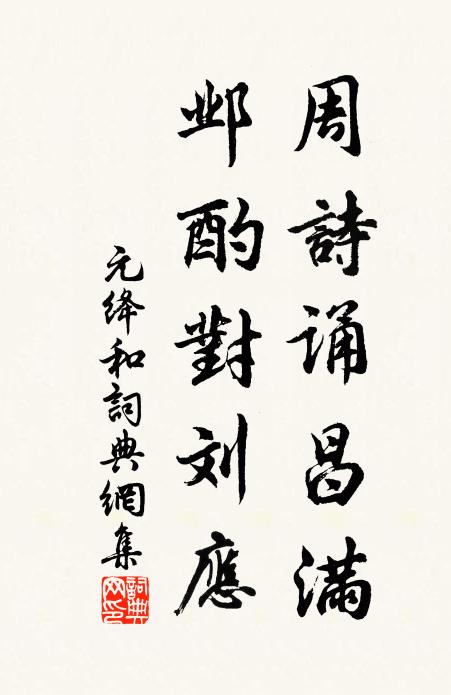 周詩诵昌满
邺酌對刘應
元绛和詞典網集
詞典网印